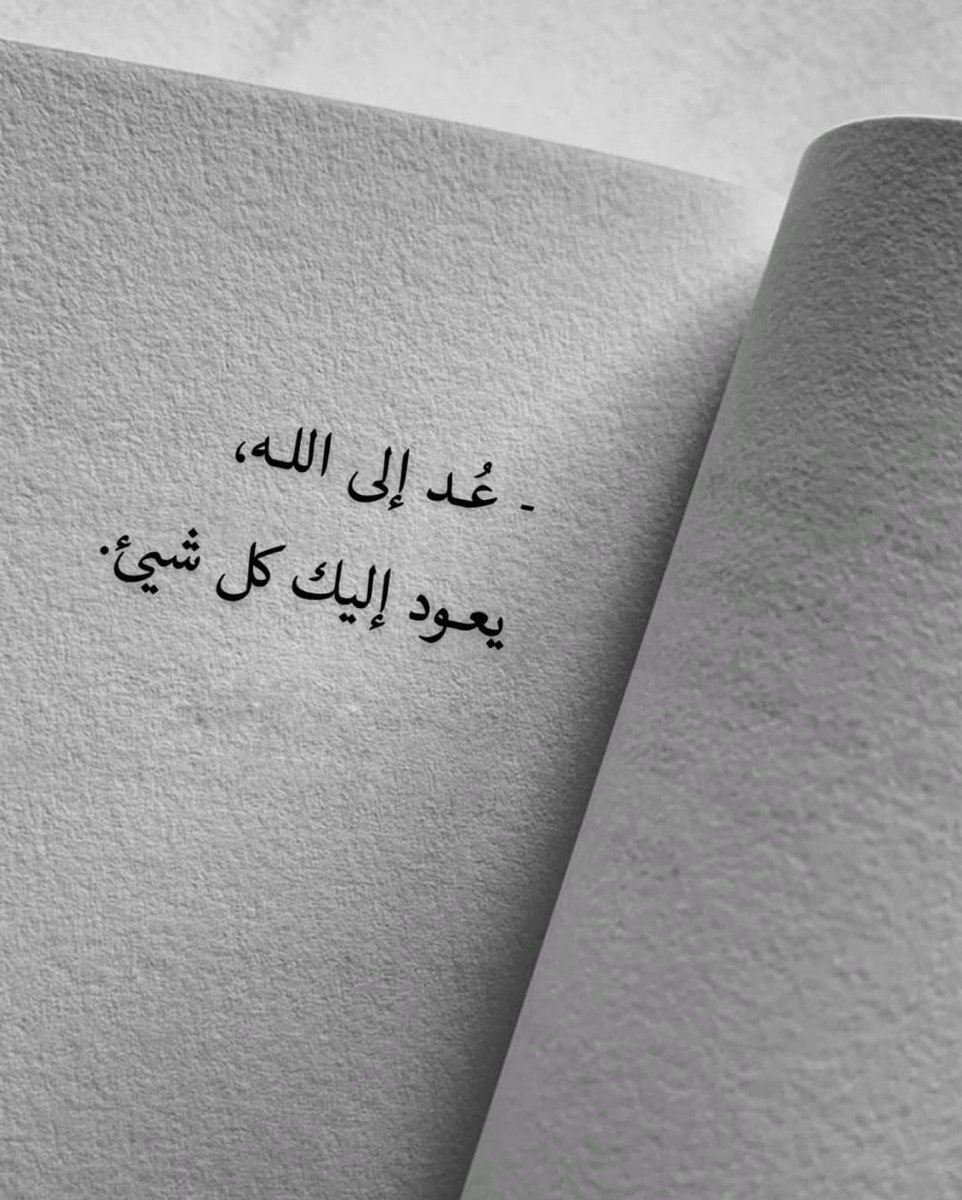 - عُـد إلى اللـه،
يعـود إليك كل شيئ.